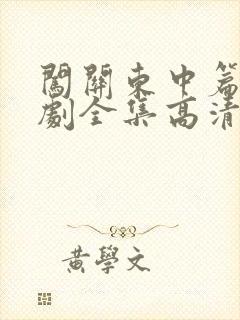 闖關東中篇
劇全集高清
黃學文